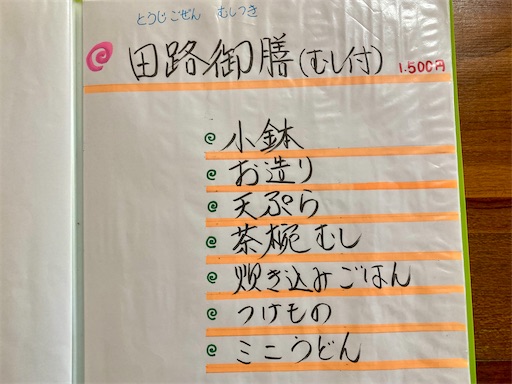 とうじごぜん むしつき
田路御膳(むし付) 1.500円
小鉢
お造り
天ぷら
茶椀むし
炊き込みごはん
つけもの
ミニうどん